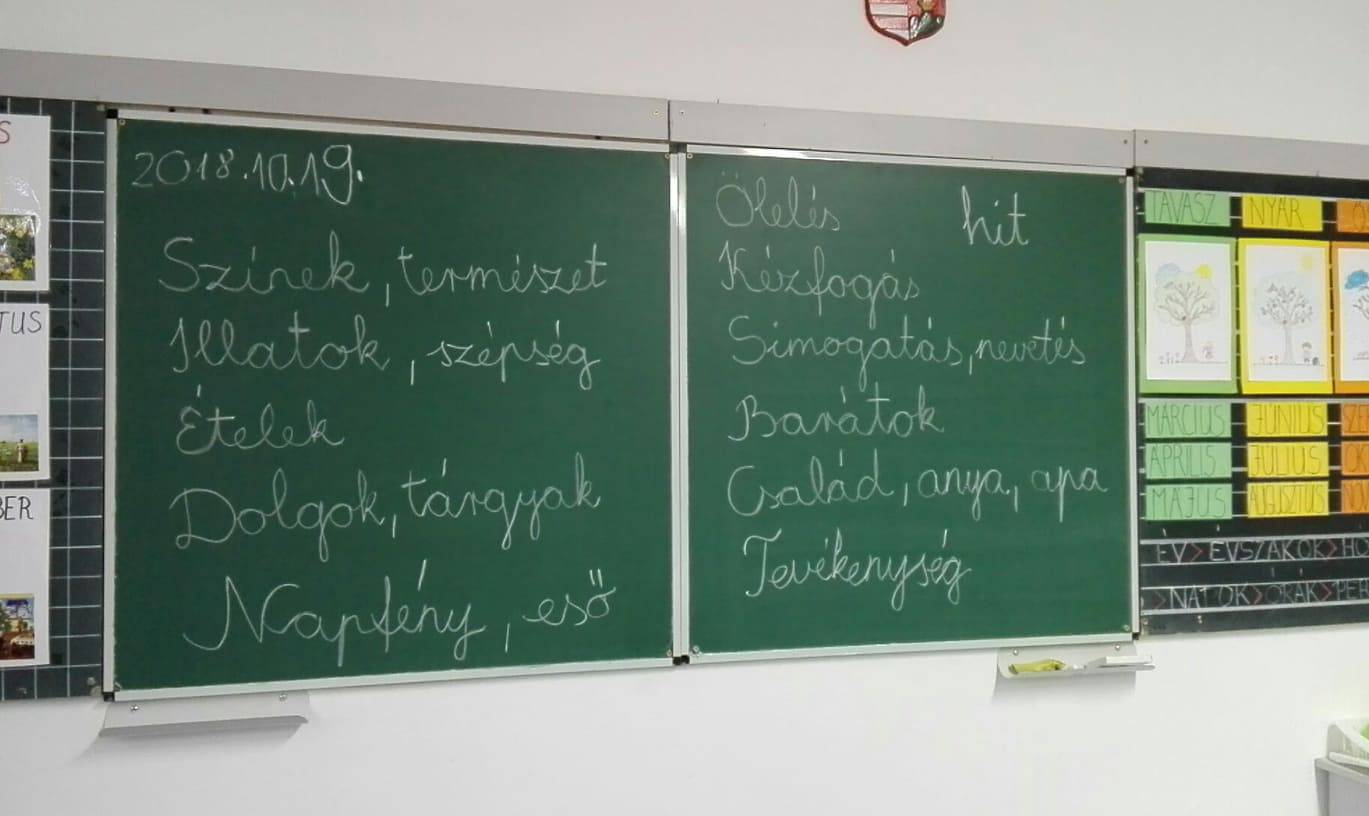 2018.10.19.
Színek, természet
Illatok, szépség
Ételek
Dolgok, tárgyak
Napfény, eső
Ölelés hit
Kézfogás
Simogatás, nevetés
Barátok
Család, anya, apa
Tevékenység
TAVASZ NYÁR
MÁRCIUS JÚNIUS SZE
ÁPRILIS JÚLIUS OK
MÁJUS AUGUSZTUS NO
ÉV > ÉVSZAKOK > HÓ
> NAPOK > ÓRÁK > PER
S
TUS
BER